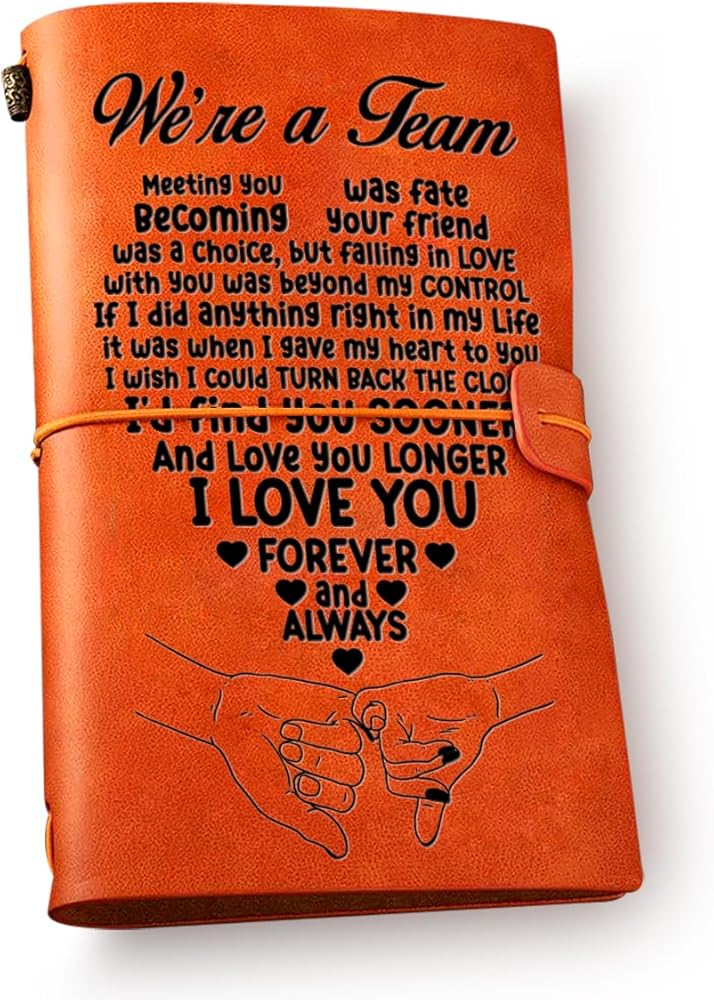 We're a Team
Meeting you was fate
Becoming your friend
was a choice, but falling in LOVE
with you was beyond my CONTROL
If I did anything right in my Life
it was when I gave my heart to you
I wish I could TURN BACK THE CLO
I'd find you SOONER
And Love you LONGER
I LOVE YOU
FOREVER
and
ALWAYS